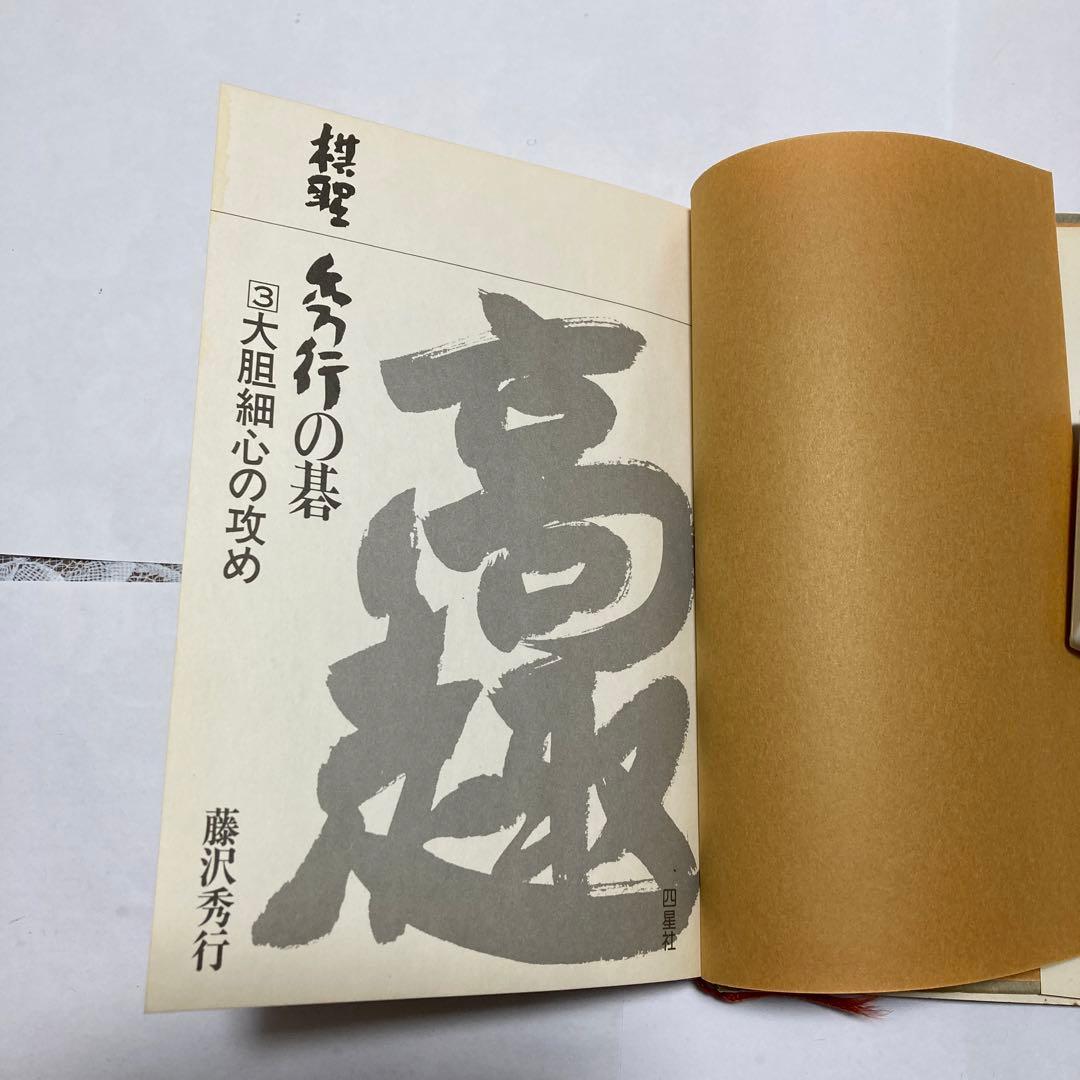 棋聖
秀行の碁
3大胆細心の攻め
高趣
藤沢秀行
四星社